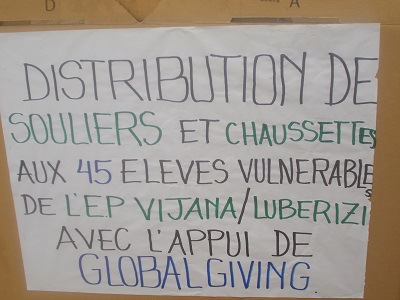 D A
DISTRIBUTION DE
SOULIERS ET CHAUSSETTES
AUX 45 ELEVES VULNERABLES
DE L'EP VIJANA/LUBERIZI
AVEC L'APPUI DE
GLOBALGIVING.